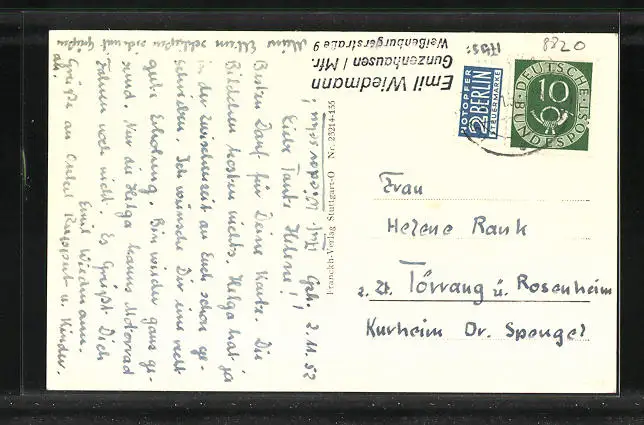 8820
Abs:
Emil Wiedmann
Gunzenhausen / Mfr.
Weißenburgerstraße 9
NOTOPFER
2 BERLIN
STEUERMARKE
DEUTSCHE
10
BUNDESPOST
Franckh-Verlag Stuttgart-O Nr. 23214-135
Frau
Helene Rank
z. Zt. Törrang ü. Rosenheim
Kurheim Dr. Spengel
Auf Wiedersehn!
Gzh. 2.11.52
Liebe Tante Helene!
Besten Dank für Deine Karte. Die
Bildchen kosten nichts. Helga hat ja
in der Zwischenzeit an Euch schon ge-
schrieben. Ich wünsche Dir eine recht
gute Erholung. Bin wieder ganz ge-
sund. Nur die Helga kanns Motorrad
fahren noch nicht. Es grüßt Dich
Emil Wiedmann.
Grüße an Onkel Ruppert u. Kinder.
Meine Eltern schließen sich mit Grüßen
an.